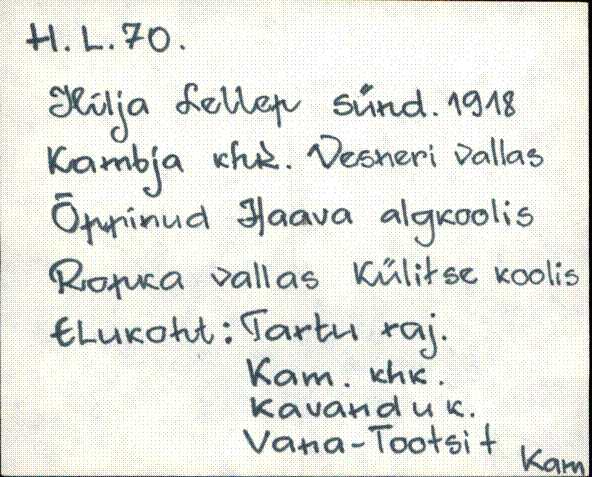 H.L.70.
Hilja Lellep sünd. 1918
Kambja khk. Vesneri vallas
Õppinud Haava algkoolis
Ropka vallas Külitse koolis
Elukoht: Tartu raj.
Kam. khk.
Kavandu k.
Vana-Tootsi t
Kam